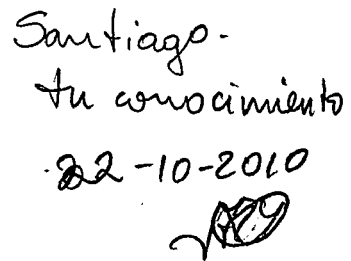 Santiago.
tu conocimiento
22-10-2010